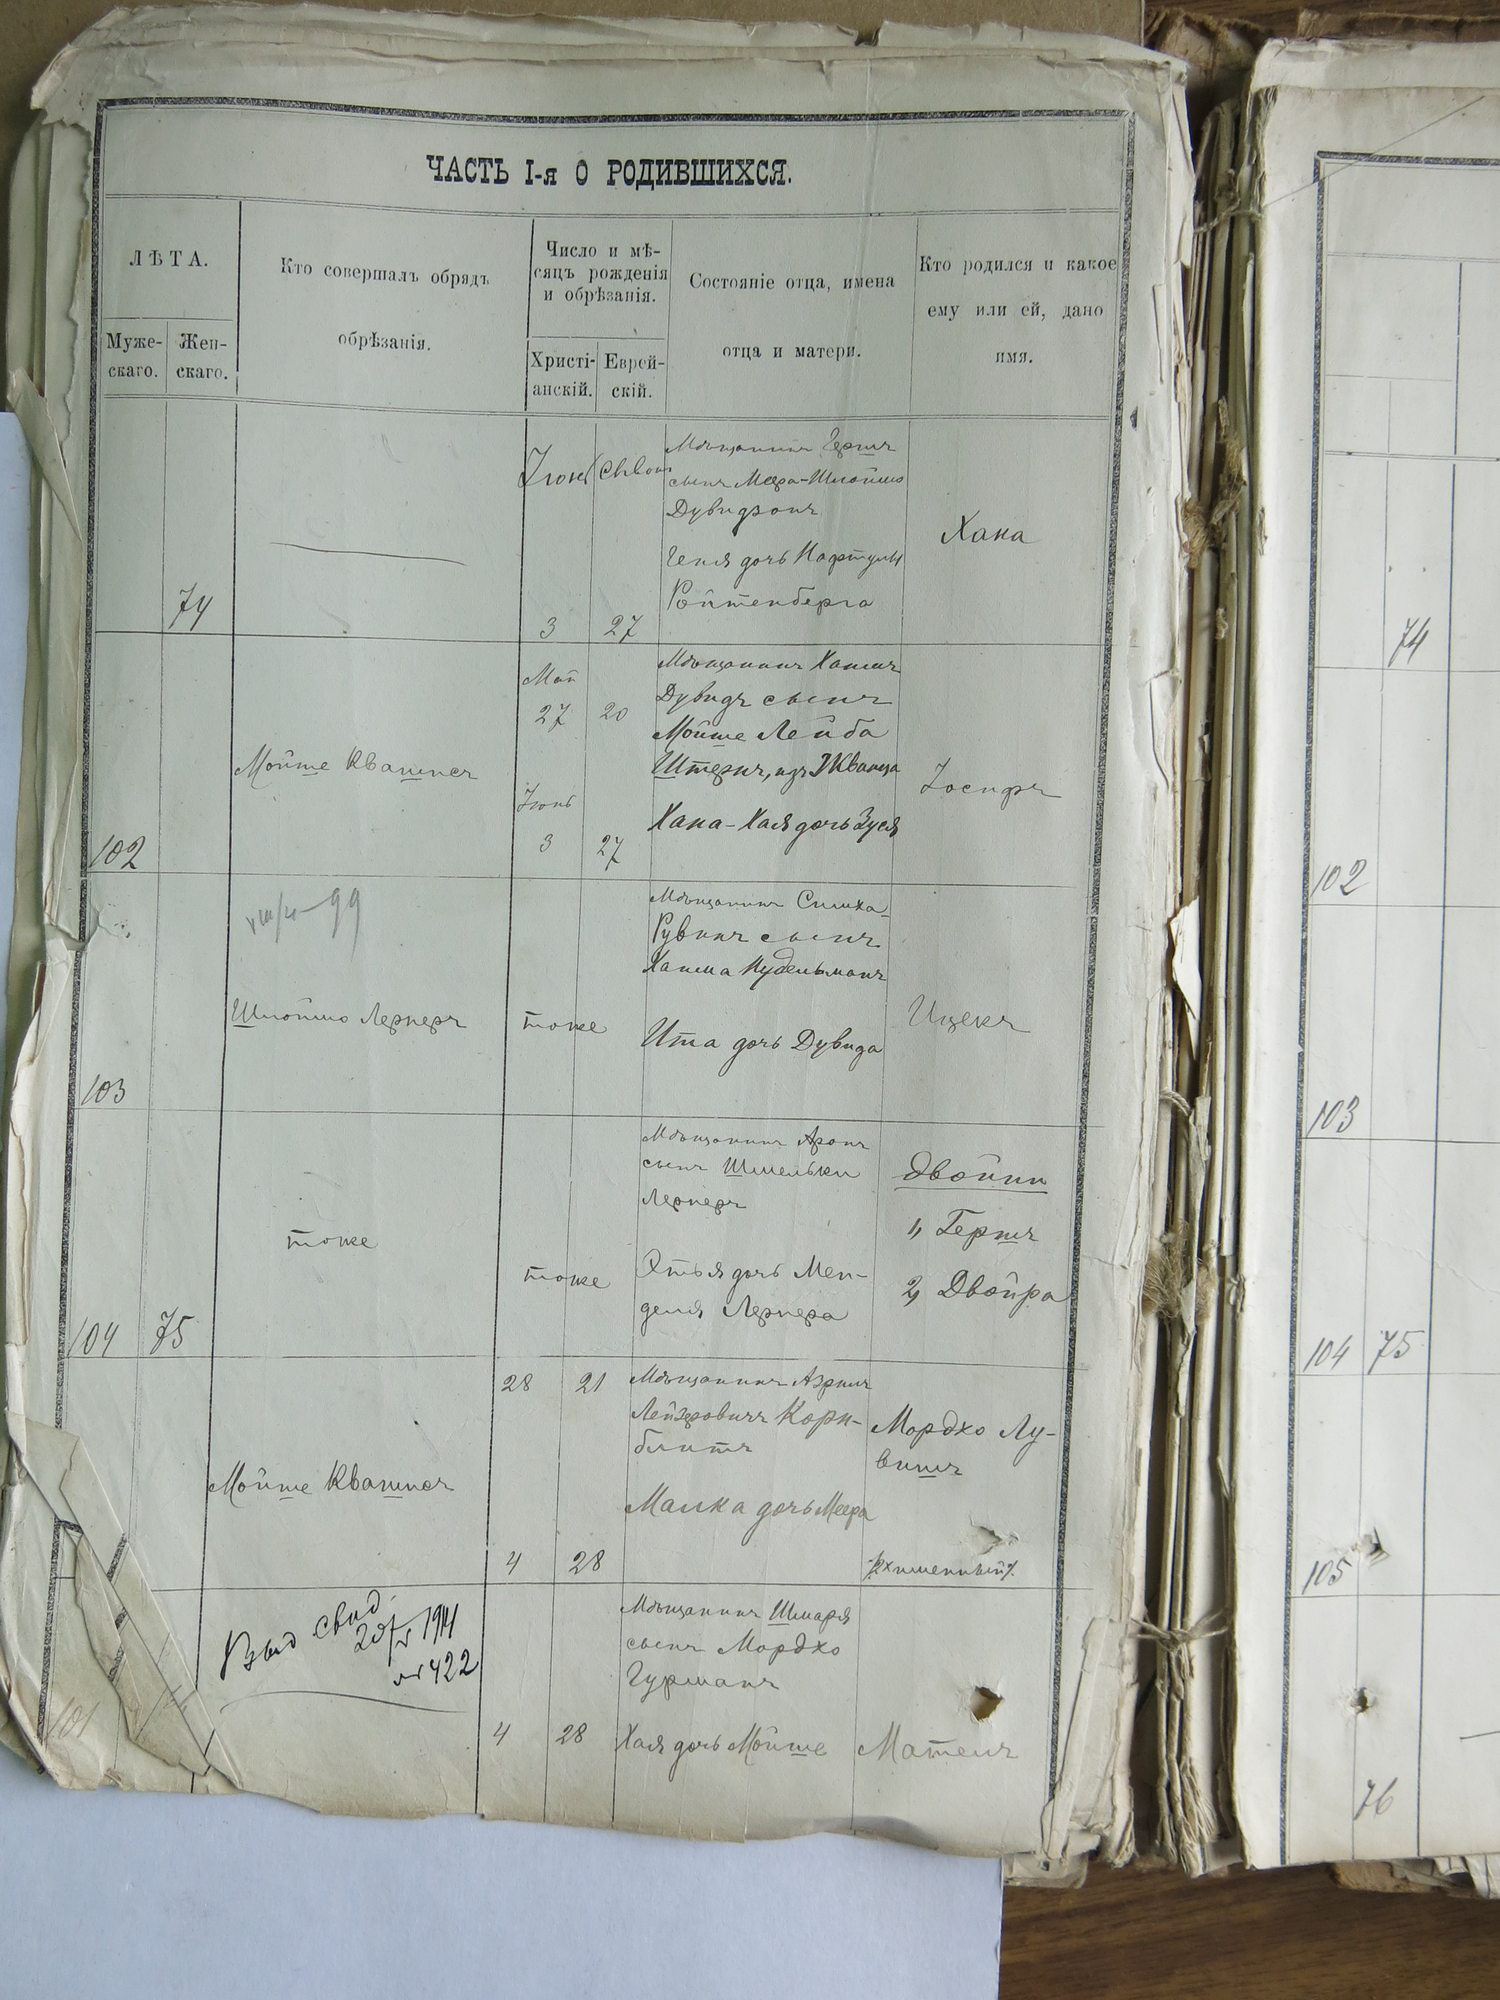 ЧАСТЬ I-я О РОДИВШИХСЯ.
ЛѢТА.
Муже-
скаго.
Жен-
скаго.
Кто совершалъ обрядъ
обрѣзанія.
Число и мѣ-
сяцъ рожденія
и обрѣзанія.
Христі-
анскій.
Еврей-
скій.
Состояніе отца, имена
отца и матери.
Кто родился и какое
ему или ей, дано
имя.
74
Іюнь
3
Сивонъ
27
Мѣщанинъ Гершъ
сынъ Меера-Шлоймо
Дувидзонъ
Геня дочь Нафтулы
Ройтенберга
Хана
102
Мойше Квашнеч
Май
27
20
Іюнь
3
27
Мѣщанинъ Хаимъ
Дувидъ сынъ
Мойше Лейба
Штернъ, изъ Жванца
Хана-Хая дочь Зуся
Іосифъ
99
103
Шлоймо Лернеръ
тоже
Мѣщанинъ Симха-
Рувинъ сынъ
Хаима Нудельманъ
Ита дочь Дувида
Ицекъ
104
75
тоже
тоже
Мѣщанинъ Аронъ
сынъ Шмельки
Лернеръ
Этья дочь Мен-
деля Лернера
Двойни
1, Гершъ
2, Двойра
Мойше Квашнеч
28
21
4
28
Мѣщанинъ Азриль
Лейзеровичъ Корн-
блитъ
Малка дочь Меера
Мордхо Лу-
вишъ
Выд свид.
20/V 1911
№ 422
4
28
Мѣщанинъ Шмаря
сынъ Мордхо
Гурманъ
Хая дочь Мойше
Матель
74
102
103
104
75
105
76